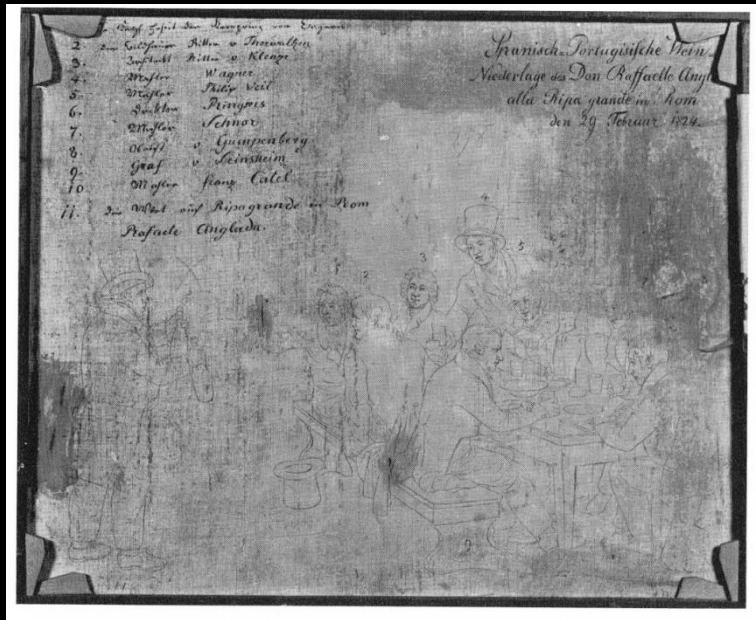 Hoheit der Kronprinz von Bayern
2. der Bildhauer Ritter v Thorwaldsen
3. Architekt Ritter v Klenze
4. Mahler Wagner
5. Mahler Philip Veit
6. Doktor Ringseis
7. Mahler Schnor
8. v Gumpenberg
9. Graf v Seinsheim
10 Mahler Franz Catel
11. der Wirt auf Ripagrande in Rom
Rafaele Anglada.
Spanisch-Portugisische Wein-
Niederlage des Don Raffaelle Angl
alla Ripa grande in Rom
den 29 Februar 1824.
4
5
3
2
1
9